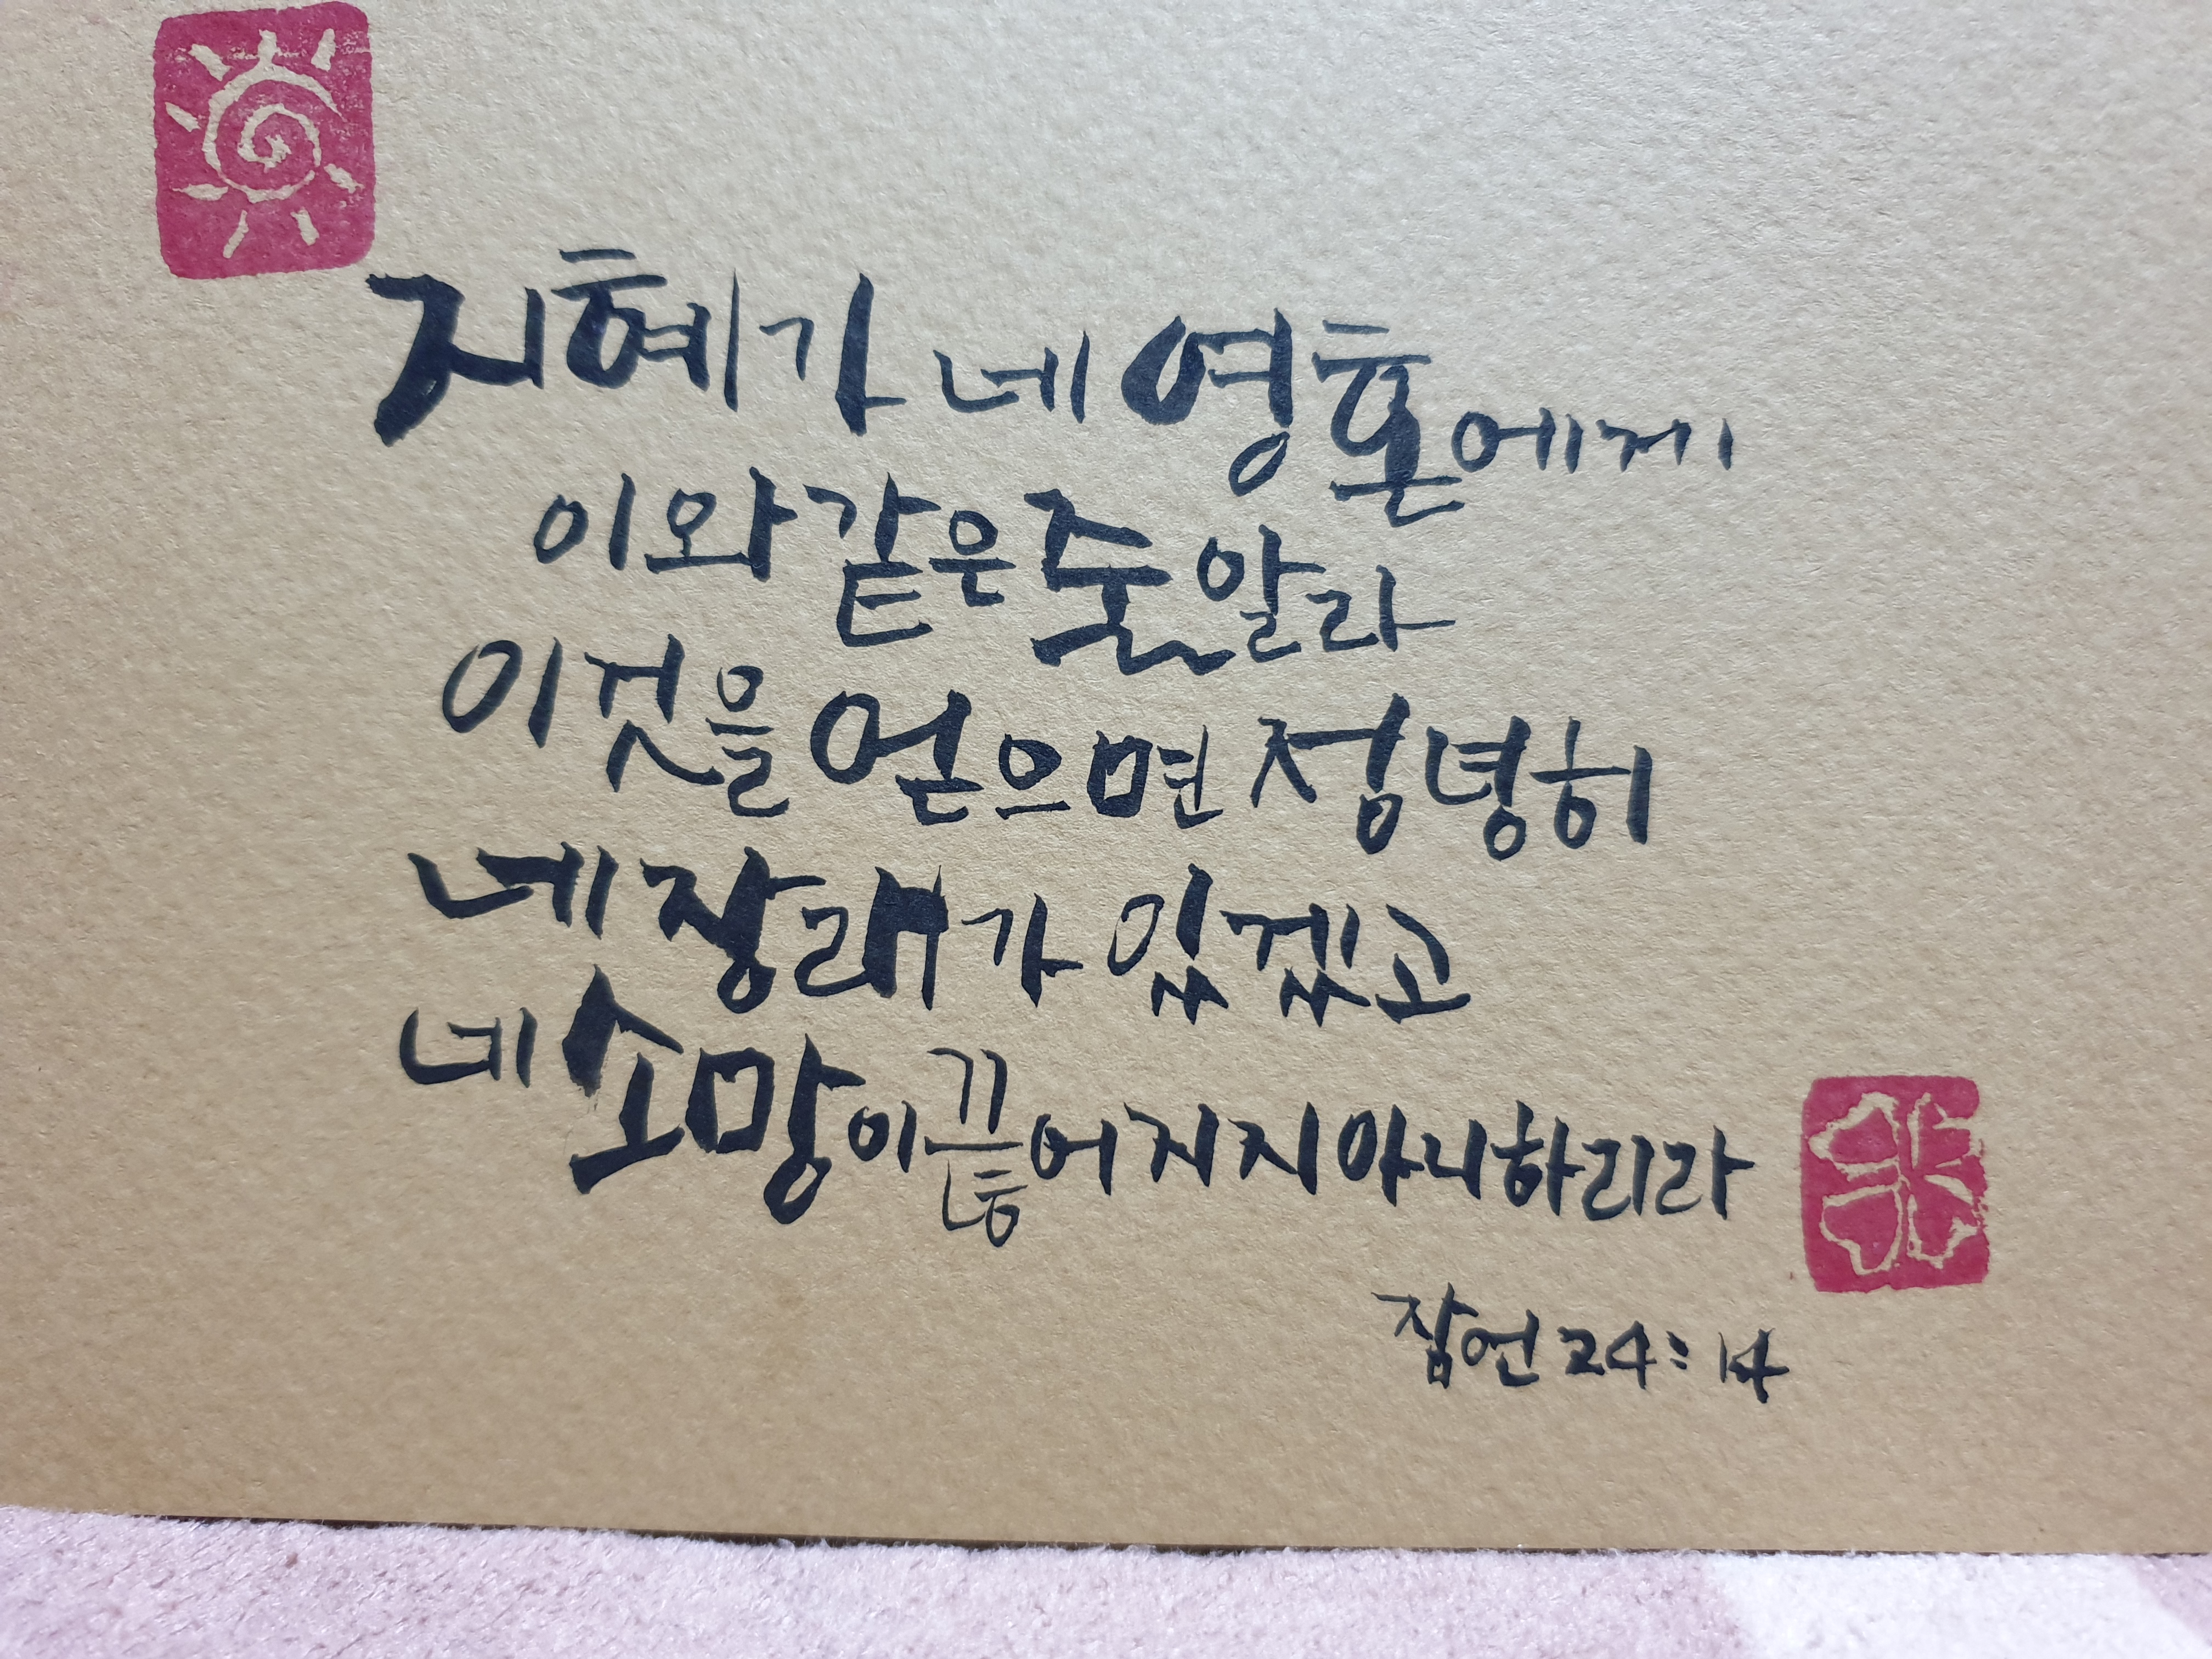 지혜가 네 영혼에게
이와 같은 줄 알라
이것을 얻으면 정녕히
네 장래가 있겠고
네 소망이 끊어지지 아니하리라
잠언 24:14